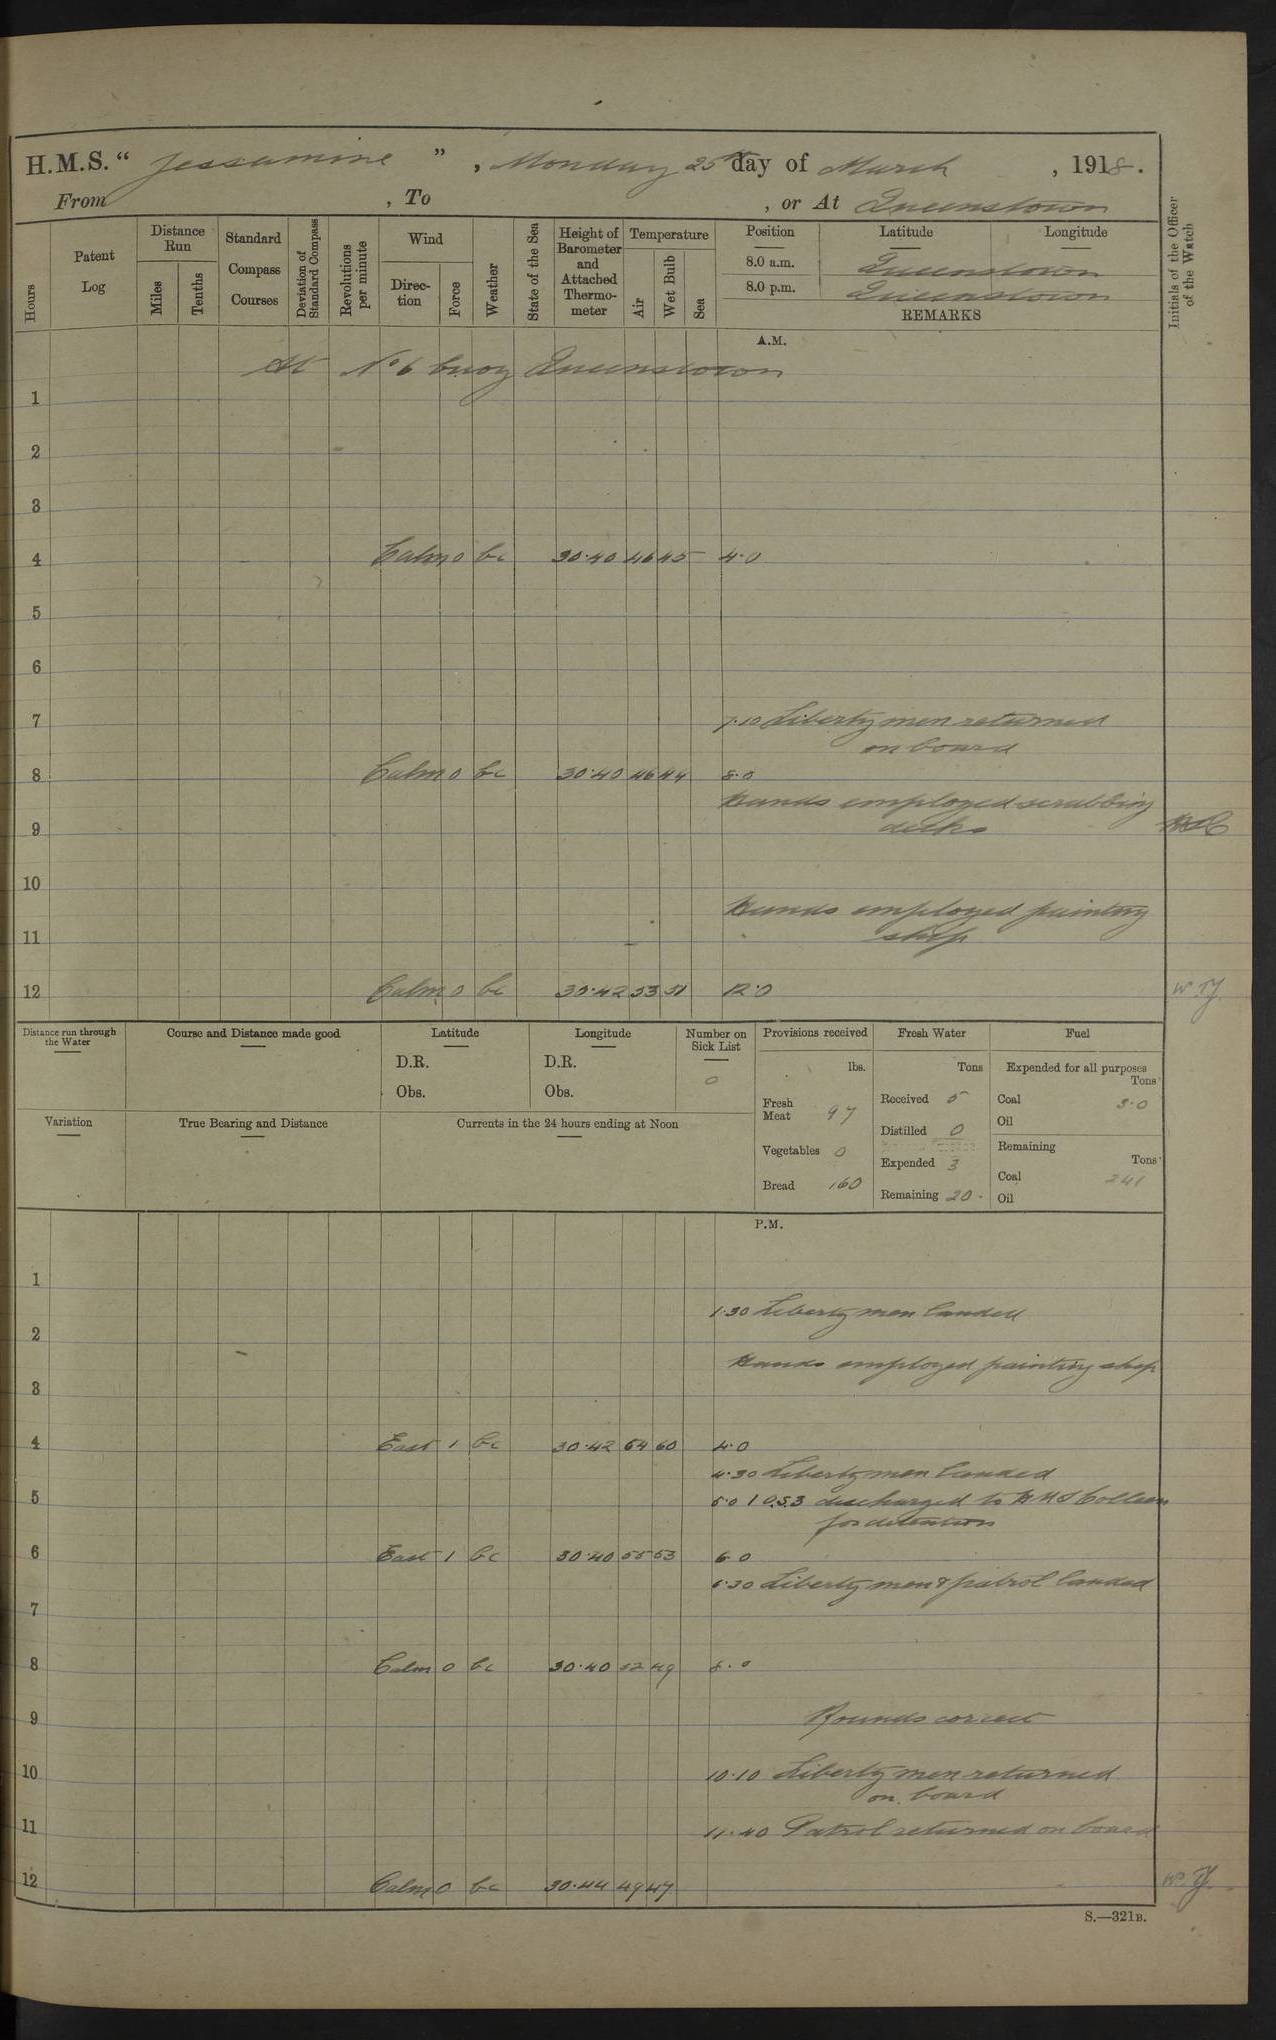 H.M.S. “ Jessamine ” , Monday 25th day of March , 1918.
From , To , or At Queenstown
Hours
Patent Log
Distance Run
Miles
Tenths
Standard Compass Courses
Deviation of Standard Compass
Revolutions per minute
Wind
Direction
Force
Weather
State of the Sea
Height of Barometer and Attached Thermometer
Temperature
Air
Wet Bulb
Sea
Position Latitude Longitude
8.0 a.m. Queenstown
8.0 p.m. Queenstown
REMARKS
Initials of the Officer of the Watch
A.M.
At No 6 buoy Queenstown
1
2
3
4 Calm 0 bc 30.40 46 45 4.0
5
6
7 7.10 Liberty men returned
on board
8 Calm 0 bc 30.40 46 44 8.0
Hands employed scrubbing
9 decks
10
Hands employed painting
11 ship
12 Calm 0 bc 30.42 53 51 12.0
Distance run through the Water
Course and Distance made good
Latitude
D.R.
Obs.
Longitude
D.R.
Obs.
Number on Sick List
0
Provisions received
lbs.
Fresh Meat 97
Vegetables 0
Bread 160
Fresh Water
Tons
Received 5
Distilled 0
Expended 3
Remaining 20.
Fuel
Expended for all purposes
Tons
Coal 3.0
Oil
Remaining
Tons
Coal 241
Oil
Variation
True Bearing and Distance
Currents in the 24 hours ending at Noon
P.M.
1
1.30 Liberty men landed
2
Hands employed painting ship
3
4 East 1 bc 30.42 64 60 4.0
4.30 Liberty men landed
5 5.0 1 O.S.3 discharged to HMS Colleen
for detention
6 East 1 bc 30.40 55 53 6.0
6.30 Liberty men & patrol landed
7
8 Calm 0 bc 30.40 52 49 8.0
9 Rounds correct
10 10.10 Liberty men returned
on board
11 11.40 Patrol returned on board
12 Calm 0 bc 30.44 49 47
S.—321B.